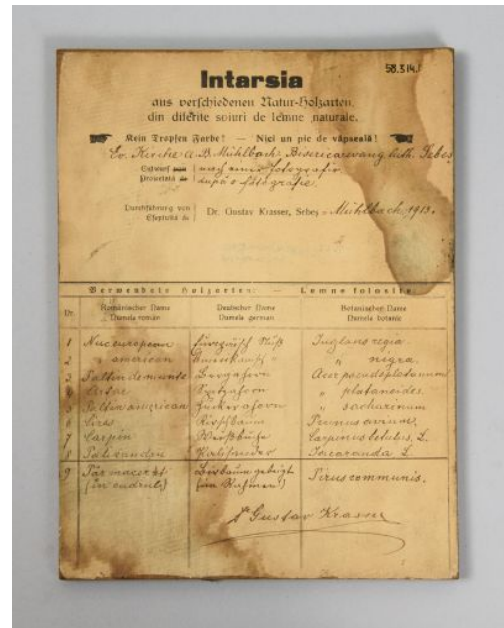 58.314.1
Intarsia
aus verschiedenen Natur-Holzarten,
din diferite soiuri de lemne naturale.
Kein Tropfen Farbe! — Nici un pic de văpseală!
Ev. Kirche A. B. Mühlbach. Biserica evang. luth. Sebeș
Entwurf von nach einer Fotografie
Proiectată de după o fotografie.
Durchführung von
Efeptuită de
Dr. Gustav Krasser, Sebeș - Mühlbach, 1913.
Verwendete Holzarten: — Lemne folosite:
Nr. Rumänischer Name Deutscher Name Botanischer Name
Numele român Numele german Numele botanic
1 Nuc european Europäisch Nuß Juglans regia
2 " american Amerikanisch " " nigra.
3 Paltin de munte Bergahorn Acer pseudoplatanus
4 Artar Spitzahorn " platanoides.
5 Paltin american Zuckerahorn " sacharinum
6 Cireș Kirschbaum Prunus avium.
7 Carpin Weißbuche Carpinus betulus, L.
8 Palisandru Palisander Jacaranda, L.
9 Păr macerat Birnbaum gebeizt Pirus communis.
(în cadrul) (im Rahmen)
Dr Gustav Krasser